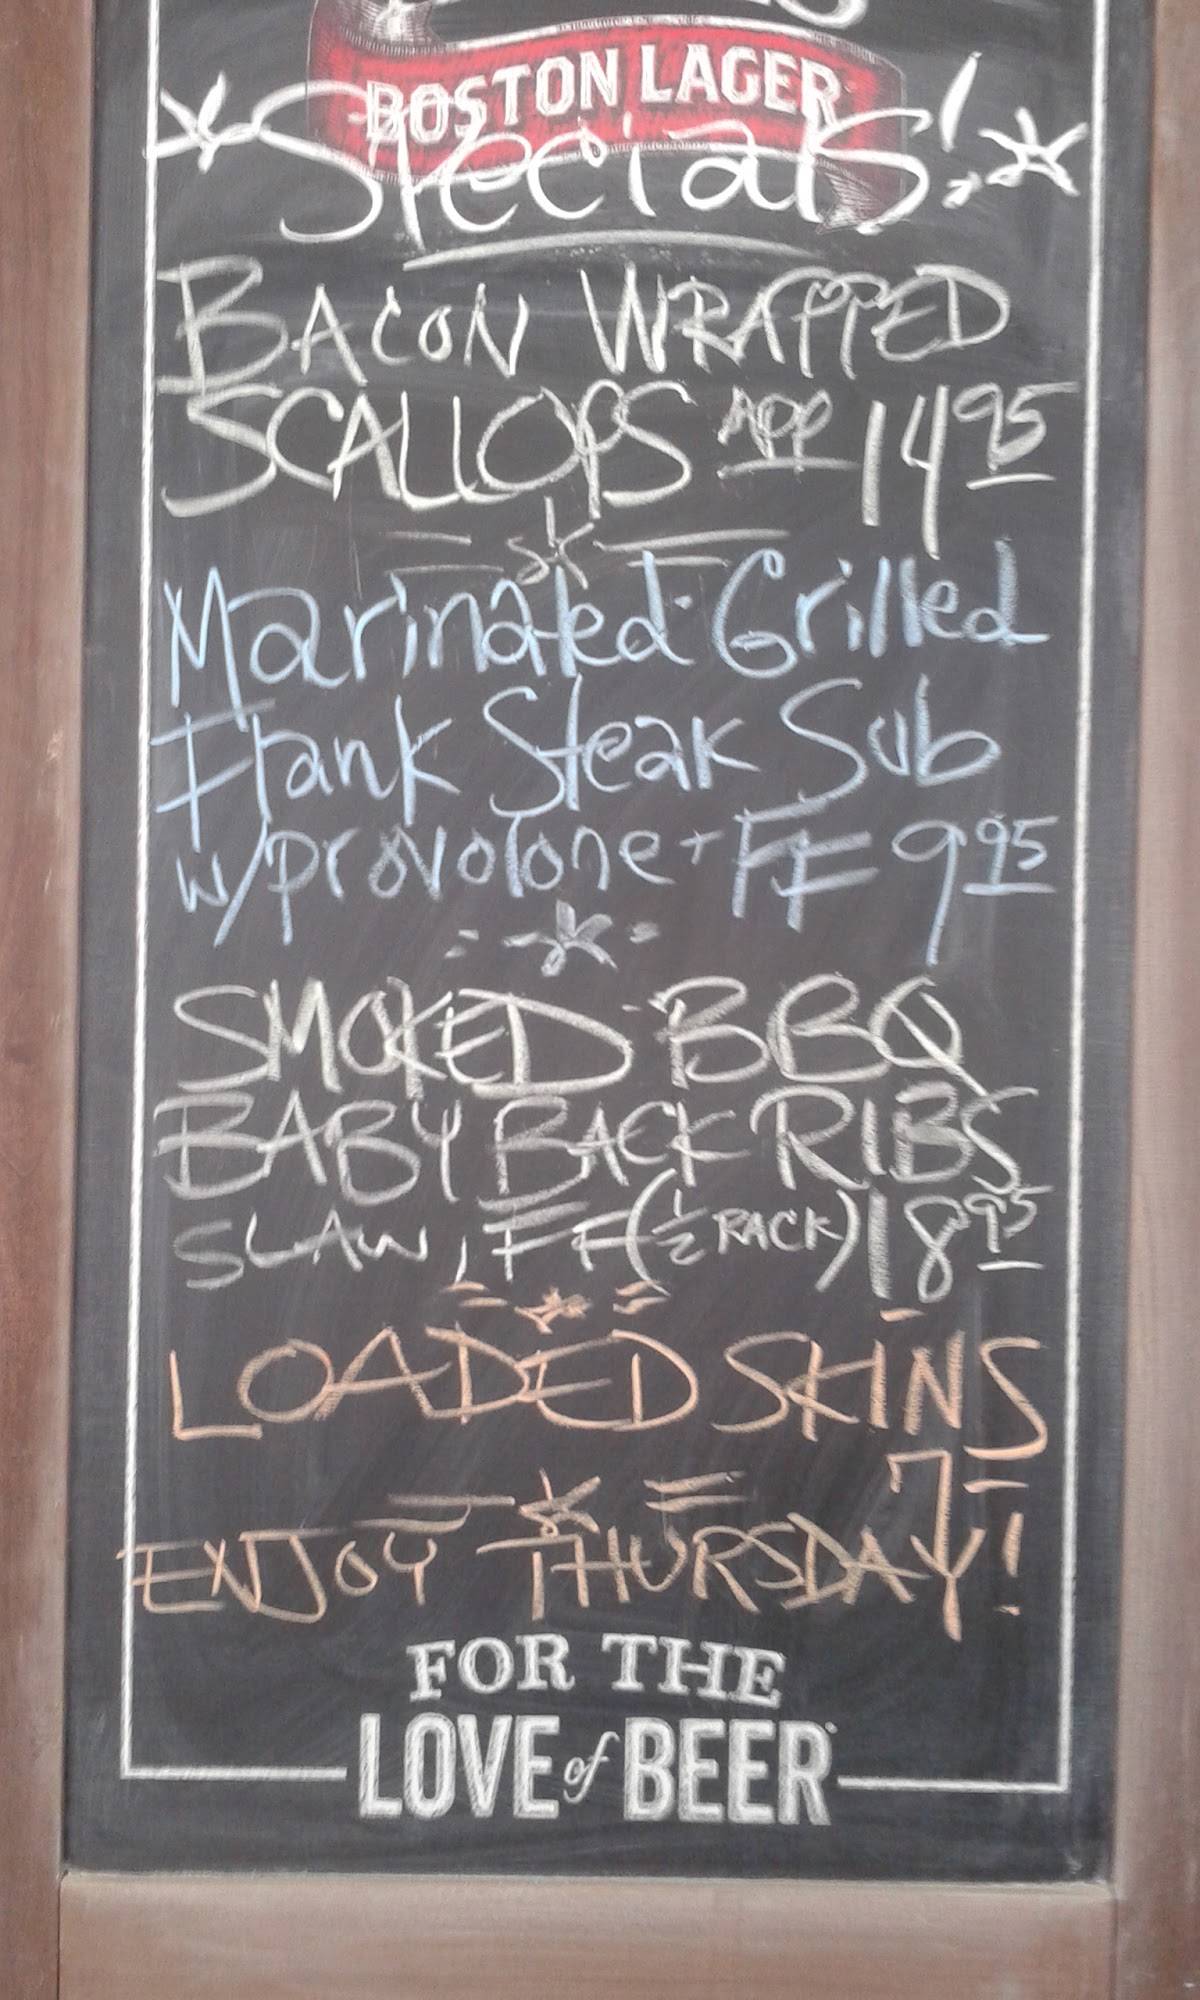 BOSTON LAGER
*Specials!*
BACON WRAPPED
SCALLOPS APP 14 95
Marinated Grilled
Flank Steak Sub
w/provolone + FF 9 95
SMOKED BBQ
BABY BACK RIBS
SLAW, FF (1/2 RACK) 18 95
LOADED SKINS
7-
ENJOY THURSDAY!
FOR THE
LOVE of BEER